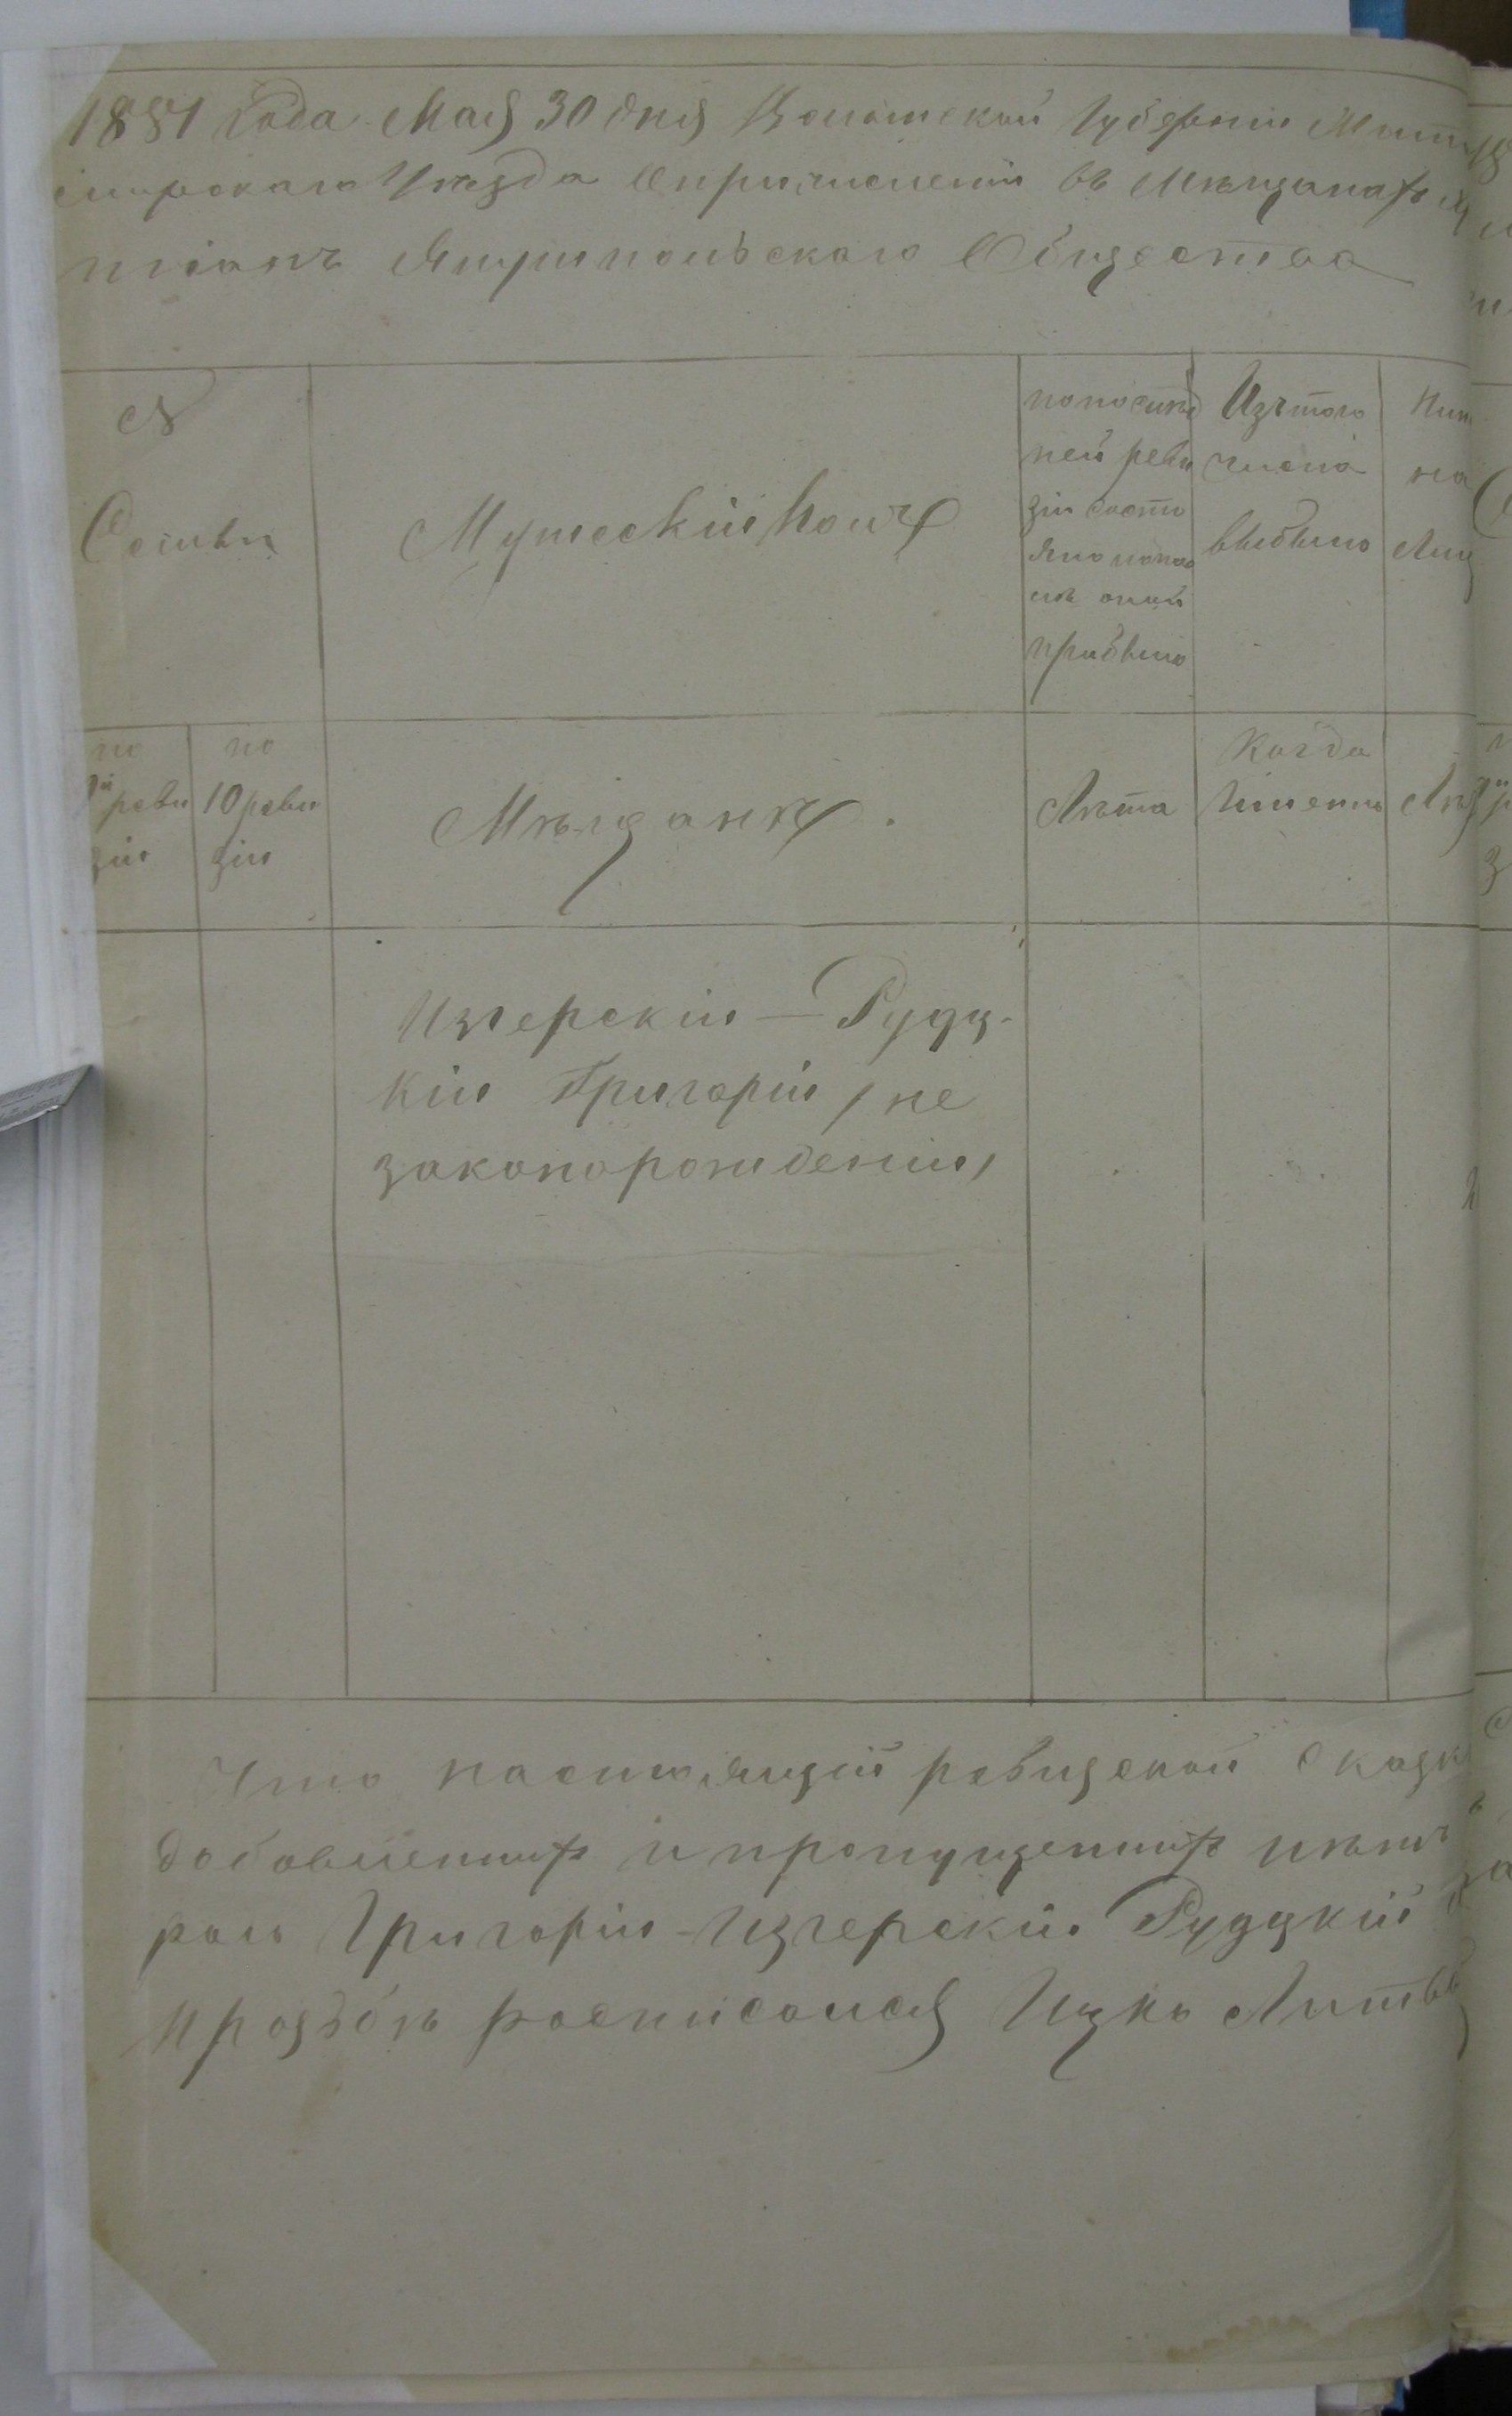 1881 Года Мая 30 дня Волынской Губернии Жит
мирскаго Уезда о причислении въ Мѣщанахъ
тіанъ Янушпольскаго Общества
№
Семьи
Мужескій полъ
по послѣд
ней реви
зіи состо
яло и посл
ѣ оной
прибыло
Изъ того
числа
выбыло
Нын
на
Лиц
по
9й реви
зіи
по
10 реви
зіи
Мѣщанъ.
Лѣта
Когда
Именно
Лѣ
Изгерскій — Рудц-
кій Григорій /не
законорожденій/
Что настоящій ревизской Сказк
добавленныхъ и пропущенныхъ нѣтъ
Григорій Изгерскій Рудцкій
росписался Ицко Литв